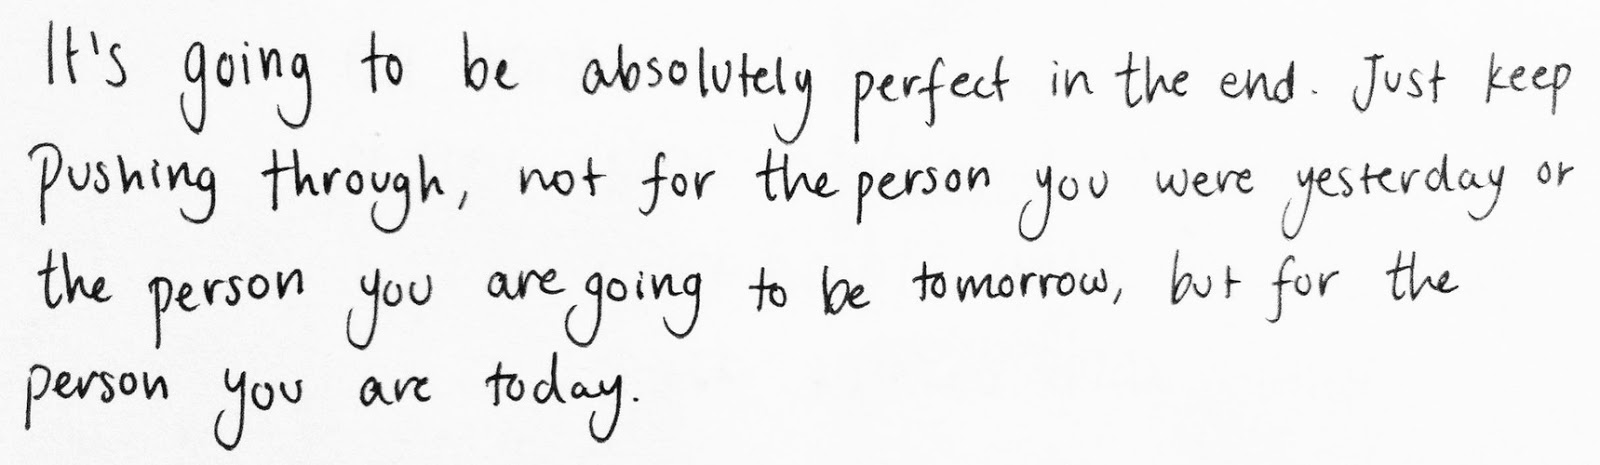 It's going to be absolutely perfect in the end. Just keep
Pushing through, not for the person you were yesterday or
the person you are going to be tomorrow, but for the
person you are today.